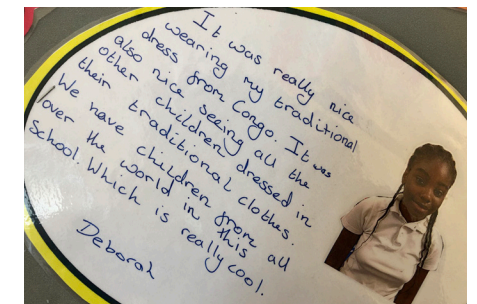 It was really nice
wearing my traditional
dress from Congo. It was
also nice seeing all the
other children dressed in
their traditional clothes.
We have children from all
over the world in this
School. Which is really cool.
Deborah